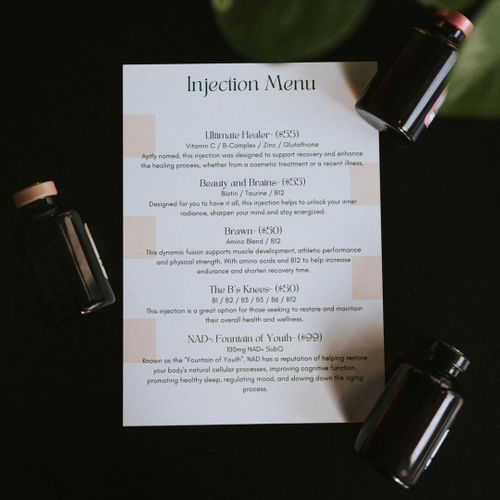 Injection Menu
Ultimate Healer- ($55)
Vitamin C / B-Complex / Zinc / Glutathione
Aptly named, this injection was designed to support recovery and enhance
the healing process, whether from a cosmetic treatment or a recent illness.
Beauty and Brains- ($55)
Biotin / Taurine / B12
Designed for you to have it all, this injection helps to unlock your inner
radiance, sharpen your mind and stay energized.
Brawn- ($50)
Amino Blend / B12
This dynamic fusion supports muscle development, athletic performance
and physical strength. With amino acids and B12 to help increase
endurance and shorten recovery time.
The B's Knees- ($50)
B1 / B2 / B3 / B5 / B6 / B12
This injection is a great option for those seeking to restore and maintain
their overall health and wellness.
NAD+ Fountain of Youth- ($99)
100mg NAD+ SubQ
Known as the "Fountain of Youth", NAD has a reputation of helping restore
your body's natural cellular processes, improving cognitive function,
promoting healthy sleep, regulating mood, and slowing down the aging
process.